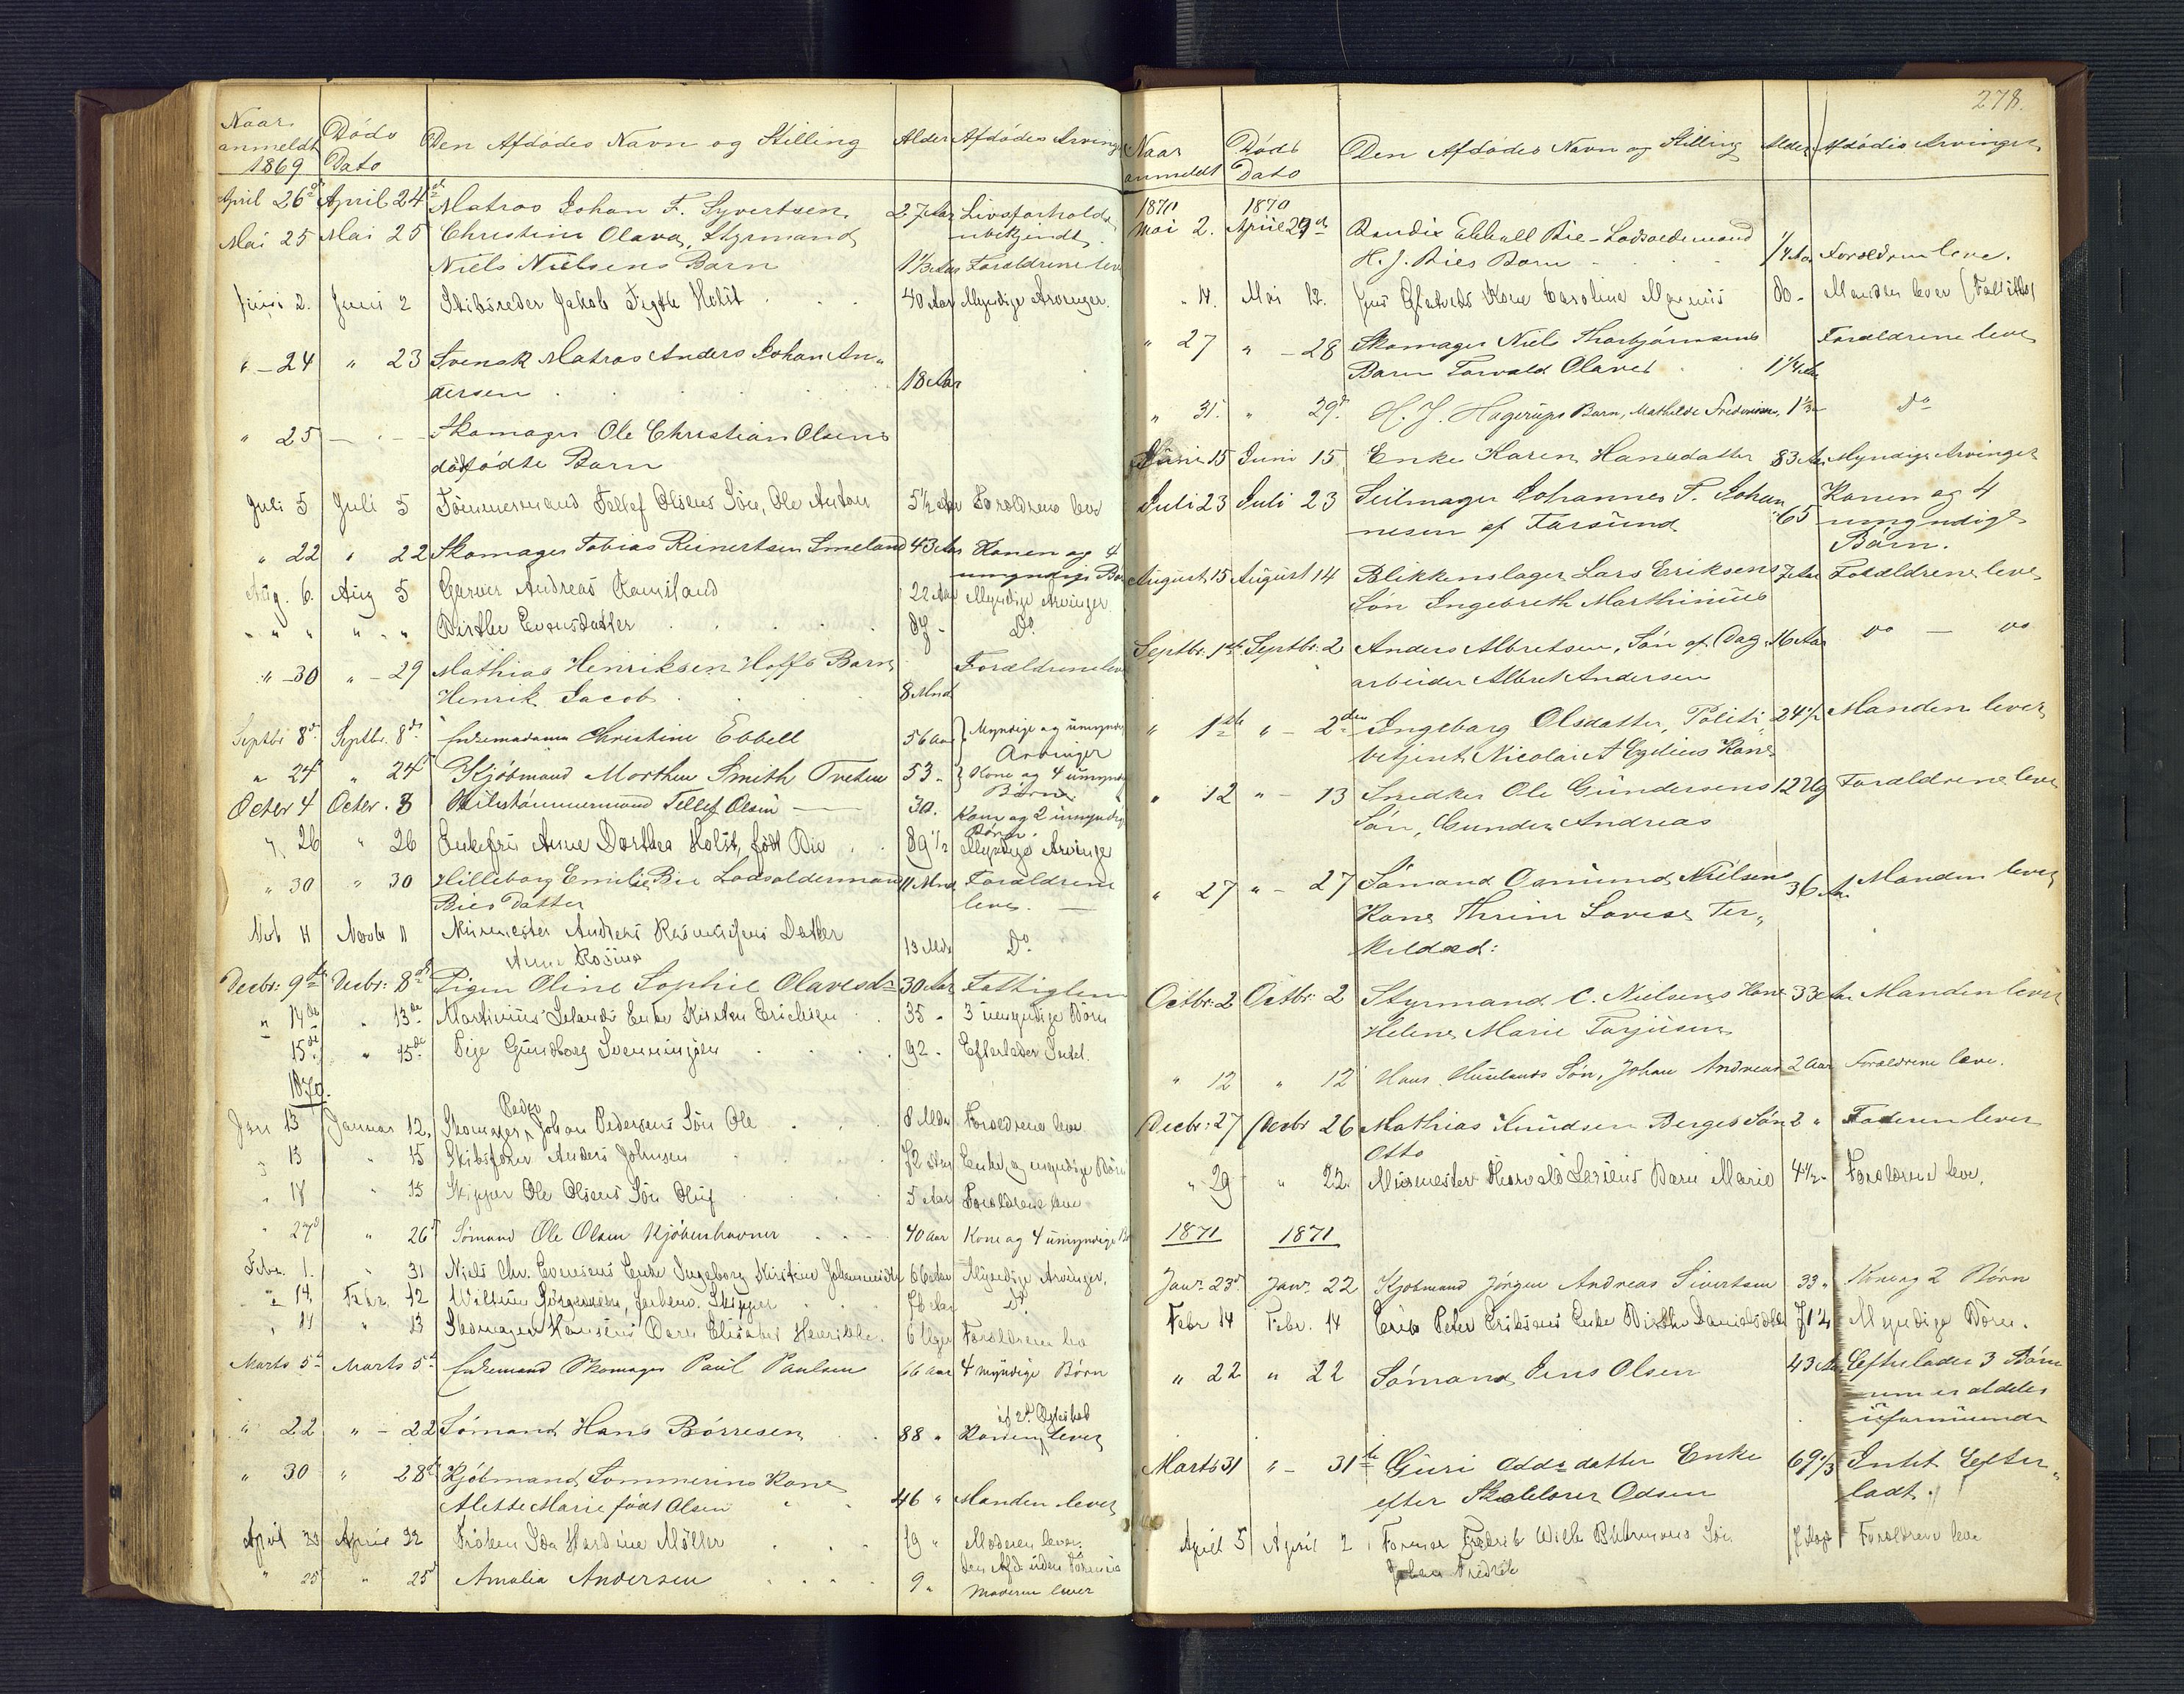 Naar anmeldt 1869 Døds Dato Den Afdødes Navn og Stilling Alder Afdødes Arvinger
April 26 April 24 Matros Johan F. Syvertsen 27 Aar Livsforholde
ubekjendt.
Mai 25 Mai 25 Christine Olava, Styrmand
Niels Nielsens Barn 1 1/3 Aar Forældrene leve
Juni 2. Juni 2 Skibsreder Jakob Holst 40 Aar Myndige Arvinger.
" - 24 " 23 Svensk Matros Anders Johan An-
dersen 18 Aar
" 25 - " - Skomager Ole Christian Olsens
dødfødte Barn
Juli 5 Juli 5 Tømmermand Tellef Olsens Søn, Ole Anton 5 1/2 Aar Forældrene leve
" 22 " 22 Skomager Tobias Reinertsen Smeland 43 Aar Konen og 4
umyndige Børn
Aug. 6. Aug 5 Garver Andreas 22 Aar Myndige Arvinger
" " " " " " Birthe Evensdatter 89 - Do.
" - 30 " - 29 Mathias Henriksen Hoffs Barn Forældrene leve
Henrik Jacob 8 Mnd
Septbr 8d Septbr. 8d Enkemadame Christine Ebbell 56 Aar Myndige og umyndige
Arvinger
" 24 " 24 Kjøbmand Morthen Smith Treten 53 - Kone og 4 umyndige
Børn
Octbr 4 Octbr. 8 Skibstømmermand Tellef Olsen 30. Kone og 2 umyndige
Børn.
" 26 " 26 Enkefru Anne Dorthea Holst, født Bie 89 1/2 Myndige Arvinger
" 30 " 30 Hilleborg Emilie Bie Lodsoldermand 11 Mnd Forældrene
Bies Datter leve.
Nov 11 Novbr 11 Murmester Andreas Rasmussens Datter 13 Mdr Do.
Anne Rosine
Decbr: 9de Decbr: 8de Pigen Oline Sophie Olavesdr 30 Aar Fattiglem
" 14de " 13de Martinius Enke Kirsten Erichsen 35 - 3 umyndige Børn
15de " 15de Pige Gundborg Svenningsen 92 - Efterlader Intet.
1870.
Jan 13 Januar 12, Skomager Peder Johan Pedersens Søn Ole 8 Mdr Forældrene leve
" 13 " 15 Skibsfører Anders Johnsen 72 Aar Enke og myndige Børn
" 18 " 15 Skipper Ole Olsens Søn Oluf 5 Aar Forældrene leve
" 27d " 26d Sømand Ole Olsen Kjøbenhavner 40 Aar Kone og 4 umyndige Bø
Febr. 1. " 31 Niels Chr. Evensens Enke Ingeborg Kirstine 66 Aar Myndige Arvinger.
" 14. Febr. 12 Willum Jørgensen, forhenv. Skipper 76 Aar Do.
" 14 " 13 Skomager Hansens Barn Elisabet Henrikke 6 Uger Forældrene leve
Marts 5t Marts 5t Enkemand Skomager Paul Paulsen 66 Aar 4 myndige Børn
" 22 " - 22 Sømand Hans Børresen 88 " Konen af 2d Ægteskab lever
" 30 " 28de Kjøbmand Sommerins Kone
Alette Marie født Olsen 46 " Manden lever
April 23 April 22 Frøken Ida Hardine Møller 19 " Moderen lever.
" 25 " 25d Amalia Andersen 9 " Moderen lever
278.
Naar anmeldt Døds Dato Den Afdødes Navn og Stilling Alder Afdødes Arvinger
1870 1870
Mai 2. April 29de Bendix Ebbell Bie - Lodsoldermand
H. J. Bies Barn 1/4 Aar Forældrene leve.
" 14. Mai 12. Jens Kone Caroline 80 - Manden lever
" 27 " - 28 Skomager Niels Thorbjørnsens Forældrene leve
Barn Torvald Olaves 1 1/4 Aar
" 31. " 29d H. J. Hagerups Barn, Mathilde Fredrikke, 1 1/3 do
Juni 15 Juni 15 Enke Karen Hansdatter 83 Aar Myndige Arvinger
Juli 23 Juli 23 Seilmager Johannes T. Johan- 65 Konen og 4
nesen af Farsund umyndige
Børn.
August 15 August 14 Blikkenslager Lars Eriksens 7 Aar Forældrene leve
Søn Ingebreth Marthinius
Septbr. 1ste Septbr: 2 Anders Albretsen, Søn af Dag- 16 Aar do - do
arbeider Albret Andersen
" 1ste " - 2den Ingeborg Olsdatter, Politi- 24 1/2 Manden lever
betjent Nicolai A Egelius Kone
" 12 " - 13 Snedker Ole Gundersens 12 Ug Forældrene leve
Søn, Gunder Andreas
" 27 " - 27 Sømand Osmund Nielsens 36 Aar Manden lever
Kone Thrine Lovise Ter-
kildsd:
Octbr: 2 Octbr: 2 Styrmand C. Nielsens Kone 33 Aar Manden lever
Helene Marie Torjusen
" 12 " 12 Hans Huselands Søn, Johan Andreas 2 Aar Forældrene leve.
Decbr: 27 Decbr 26 Mathias Knudsen Berges Søn 2 " Faderen lever
Otto
" 29 " 22. Murmester Barn Marie 4 1/2 - Forældrene leve.
1871 1871
Janr. 23d Janr. 22 Kjøbmand Jørgen Andreas Sivertsen 33 " Kone og 2 Børn
Febr 14 Febr. 14 Erik Peter Eriksens Enke Birthe Danielsdtr 71 1/2 Myndige Børn.
" 22 " 22 Sømand Jens Olsen 43 Aar Efterlader 3 Børn
uformuende
Marts 31 " - 31te Guri Oddsdatter Enke 69 1/3 Intet Efter-
efter Odsen ladt.
April 5 April 2 Former Fredrik Wilh. Søn 7 Dage Forældrene leve
Johan Fredrik